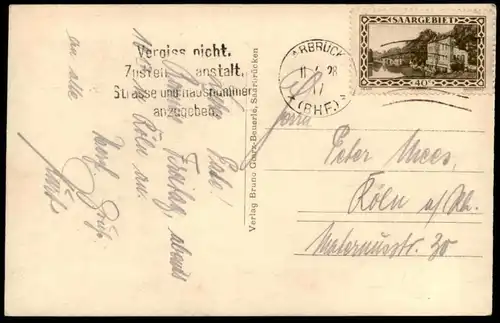 Vergiss nicht.
Zustell anstalt,
Strasse und Hausnummer
anzugeben.
ARBRÜCK
11 28
17
* (BHF) *
SAARGEBIET
40
Verlag Bruno Beuerle, Saarbrücken
Herrn
Peter Mees,
Köln a/Rh.
Maternusstr. 30
Liebe
Komme Freitag, abends
Köln an.
an alle